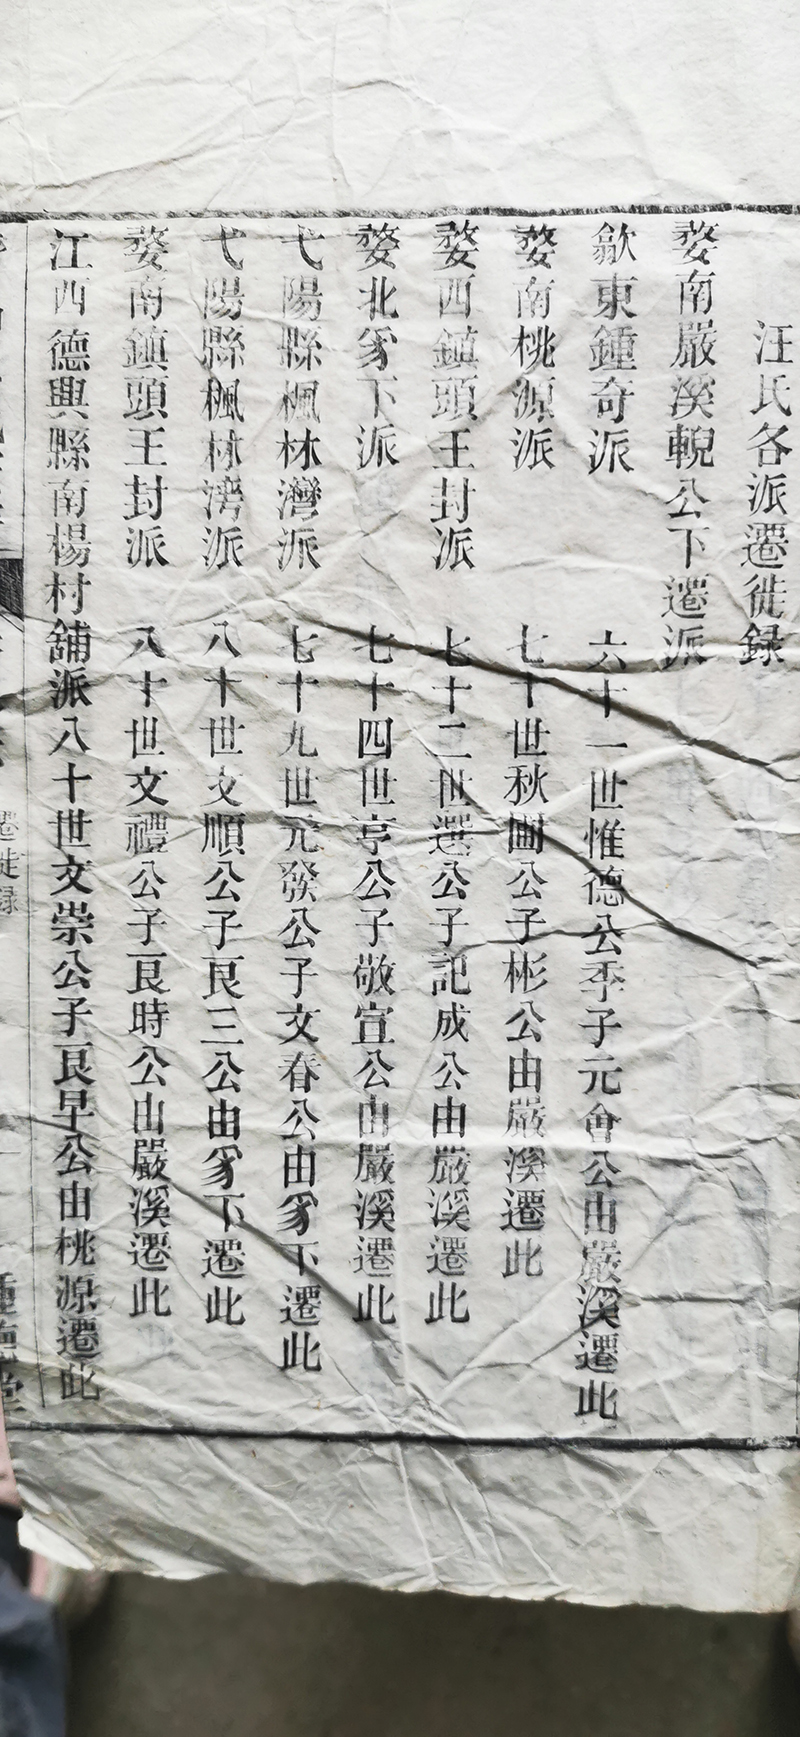 汪氏各派遷徙録
婺南嚴溪輗公下遷派
歙東鍾奇派 六十一世惟德公季子元會公由嚴溪遷此
婺南桃源派 七十世秋圃公子彬公由嚴溪遷此
婺西鎮頭王封派 七十二世選公子記成公由嚴溪遷此
婺北豸下派 七十四世亨公子敬宣公由嚴溪遷此
弋陽縣楓林灣派 七十九世元發公子文春公由豸下遷此
弋陽縣楓林灣派 八十世文順公子艮三公由豸下遷此
婺南鎮頭王封派 八十世文禮公子艮時公由嚴溪遷此
江西德興縣南楊村舖派八十世文崇公子艮早公由桃源遷此
遷徙録